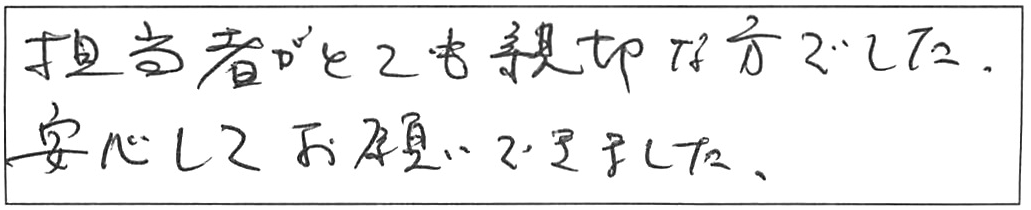 担当者がとても親切な方でした.
安心してお願いできました、